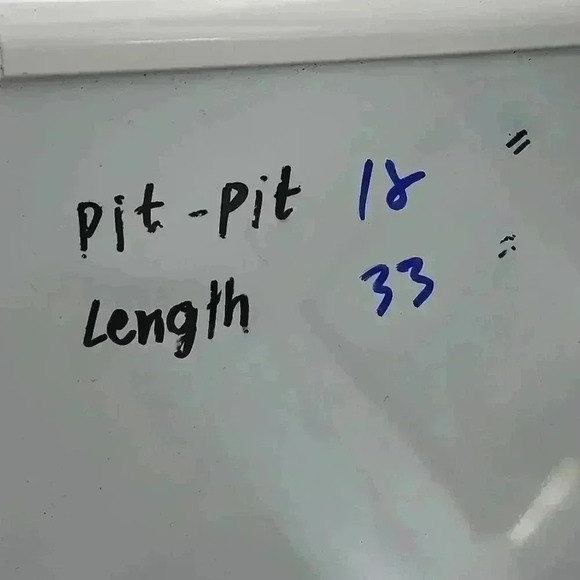 Pit - Pit 18 "
Length 33 "